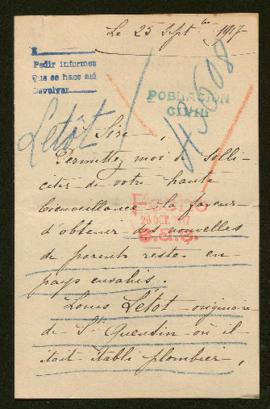 Le 25 Sept bre 1917
Pedir informes
Que se hace así
Devolver
43608
POBLACION
CIVIL
Letôt
Sire,
Permettez moi de solli-
citer de votre haute
bienveillance la faveur
d'obtenir des nouvelles
de parents restés en
pays envahis.
20 OCT. 1917
Louis Létot originaire
de St Quentin où il
était établi plombier,